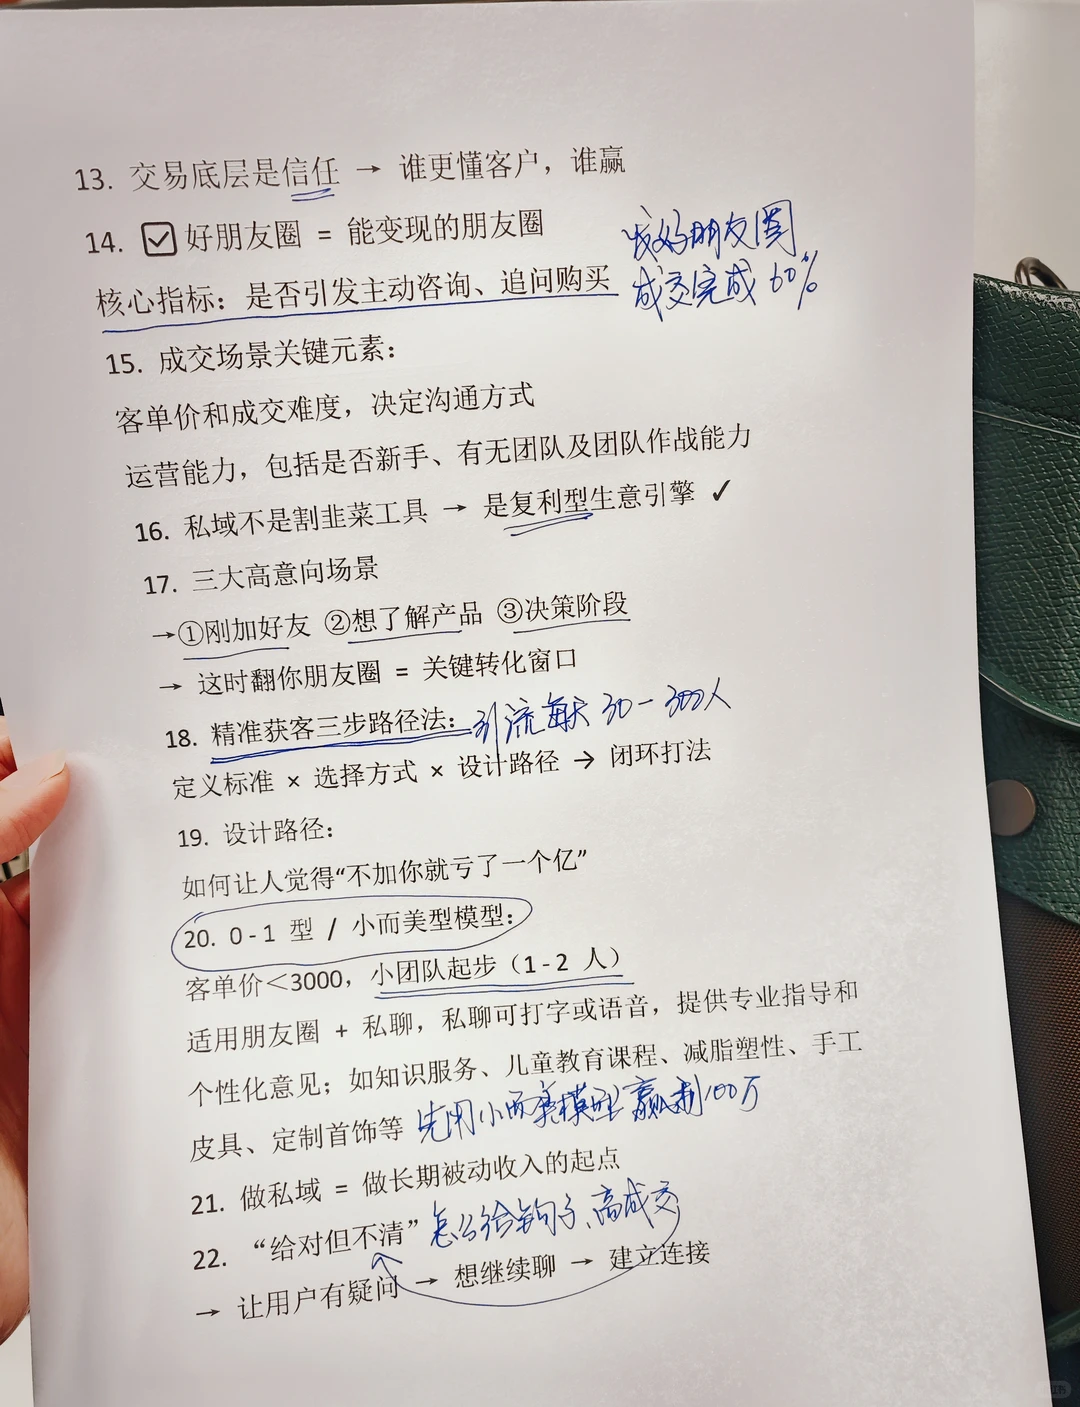 13. 交易底层是信任 → 谁更懂客户，谁赢
14. ☑ 好朋友圈 = 能变现的朋友圈
发好朋友圈
核心指标：是否引发主动咨询、追问购买
成交完成 60%
15. 成交场景关键元素：
客单价和成交难度，决定沟通方式
运营能力，包括是否新手、有无团队及团队作战能力
16. 私域不是割韭菜工具 → 是复利型生意引擎 ✓
17. 三大高意向场景
→①刚加好友 ②想了解产品 ③决策阶段
→ 这时翻你朋友圈 = 关键转化窗口
18. 精准获客三步路径法：引流每天 30-300人
定义标准 × 选择方式 × 设计路径 → 闭环打法
19. 设计路径：
如何让人觉得“不加你就亏了一个亿”
20. 0-1 型 / 小而美型模型：
客单价＜3000，小团队起步（1-2 人）
适用朋友圈 + 私聊，私聊可打字或语音，提供专业指导和
个性化意见；如知识服务、儿童教育课程、减脂塑性、手工
皮具、定制首饰等 先用小而美模型赢利100万
21. 做私域 = 做长期被动收入的起点
22. “给对但不清” 怎么给钩子、高成交
→ 让用户有疑问 → 想继续聊 → 建立连接